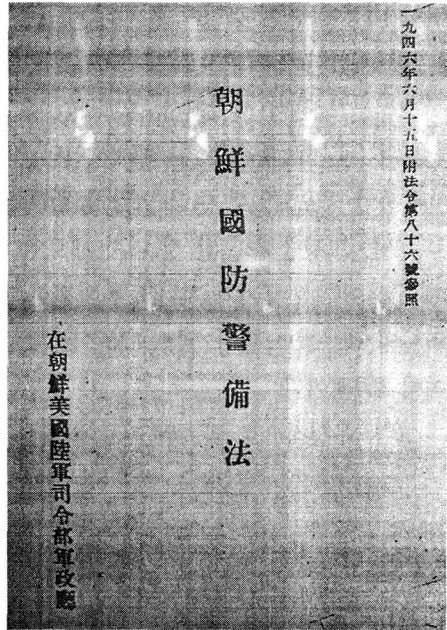 一九四六年六月十五日附法令第八十六號參照
朝鮮國防警備法
在朝鮮美國陸軍司令部軍政廳